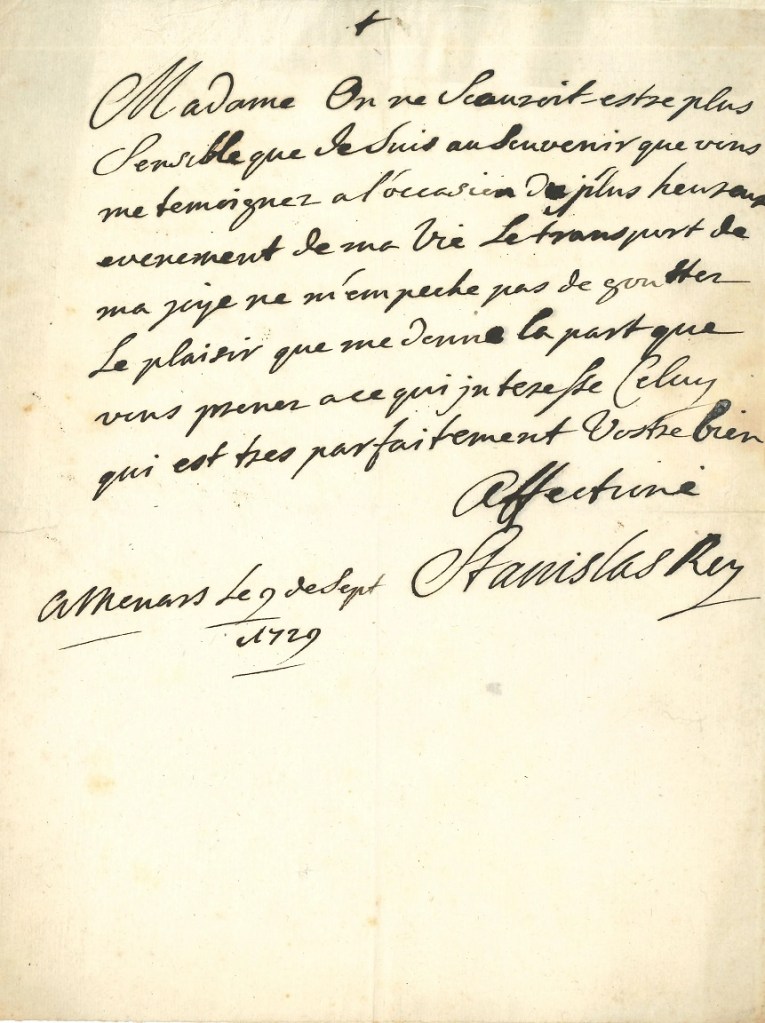 Madame On ne Scauroit estre plus
Sensible que Je Suis au Souvenir que vous
me temoignez a l'occasion du plus heureux
evenement de ma Vie Le transport de
ma joye ne m'empeche pas de goutter
Le plaisir que me donne la part que
vous prenez a ce qui jnteresse Celuy
qui est tres parfaitement Vostre bien
affectioné
Stanislas Roy
a Menars Le 9 de Sept
1729